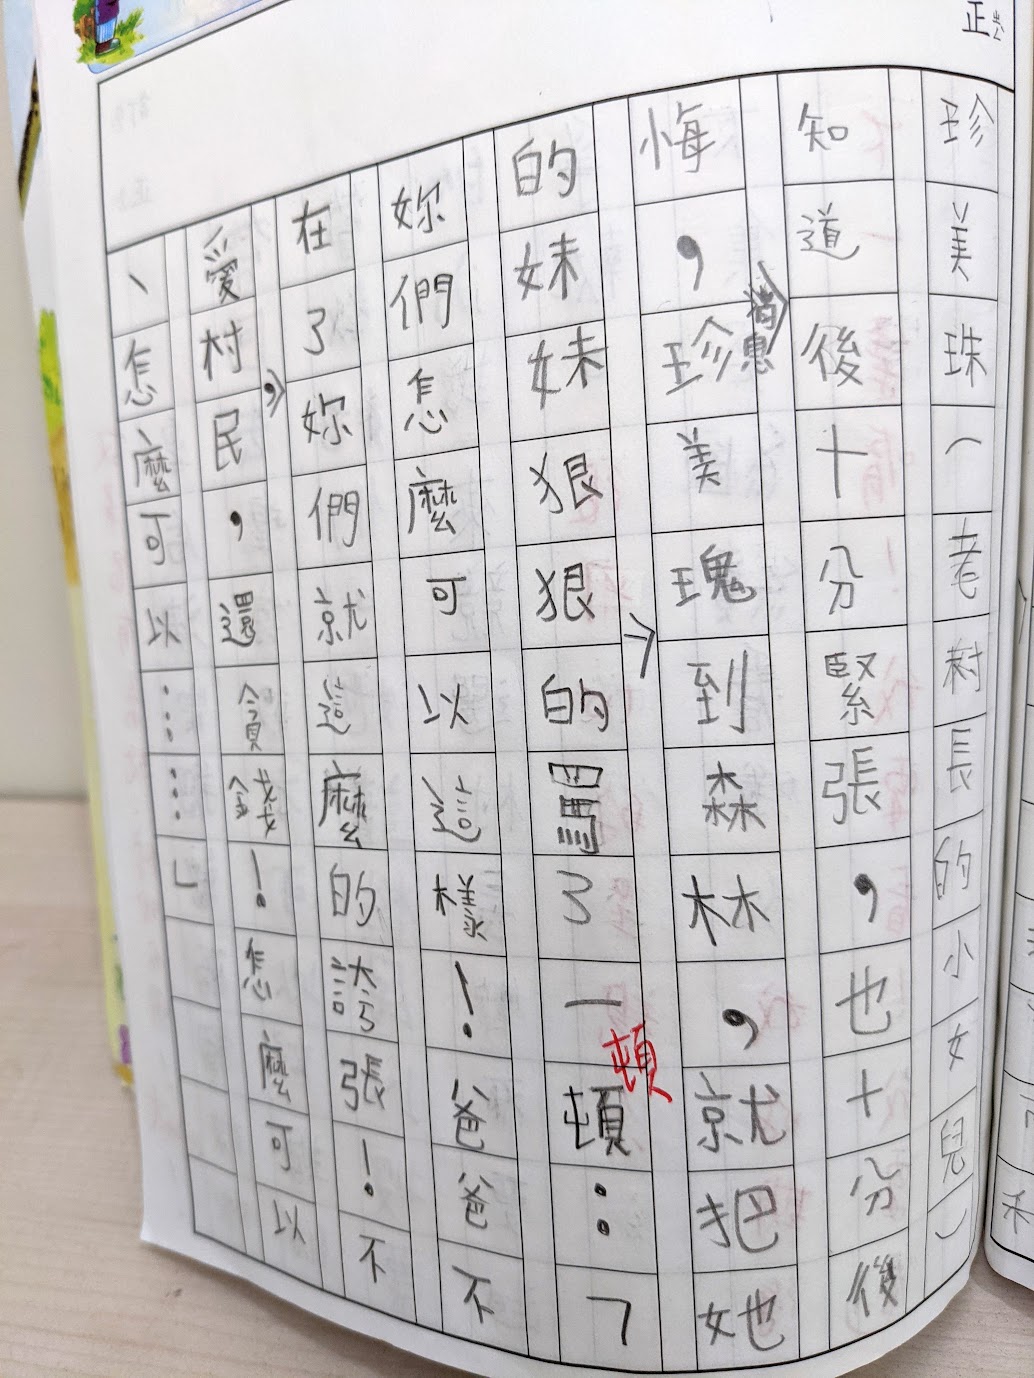 珍美珠(老村長的小女兒)
知道後十分緊張,也十分後
悔,珍美瑰到森林,就把她
的妹妹狠狠的罵了一頓:「
頓
妳們怎麼可以這樣!爸爸不
在了妳們就這麼的誇張!不
,
愛村民,還貪錢!怎麼可以
、怎麼可以……」